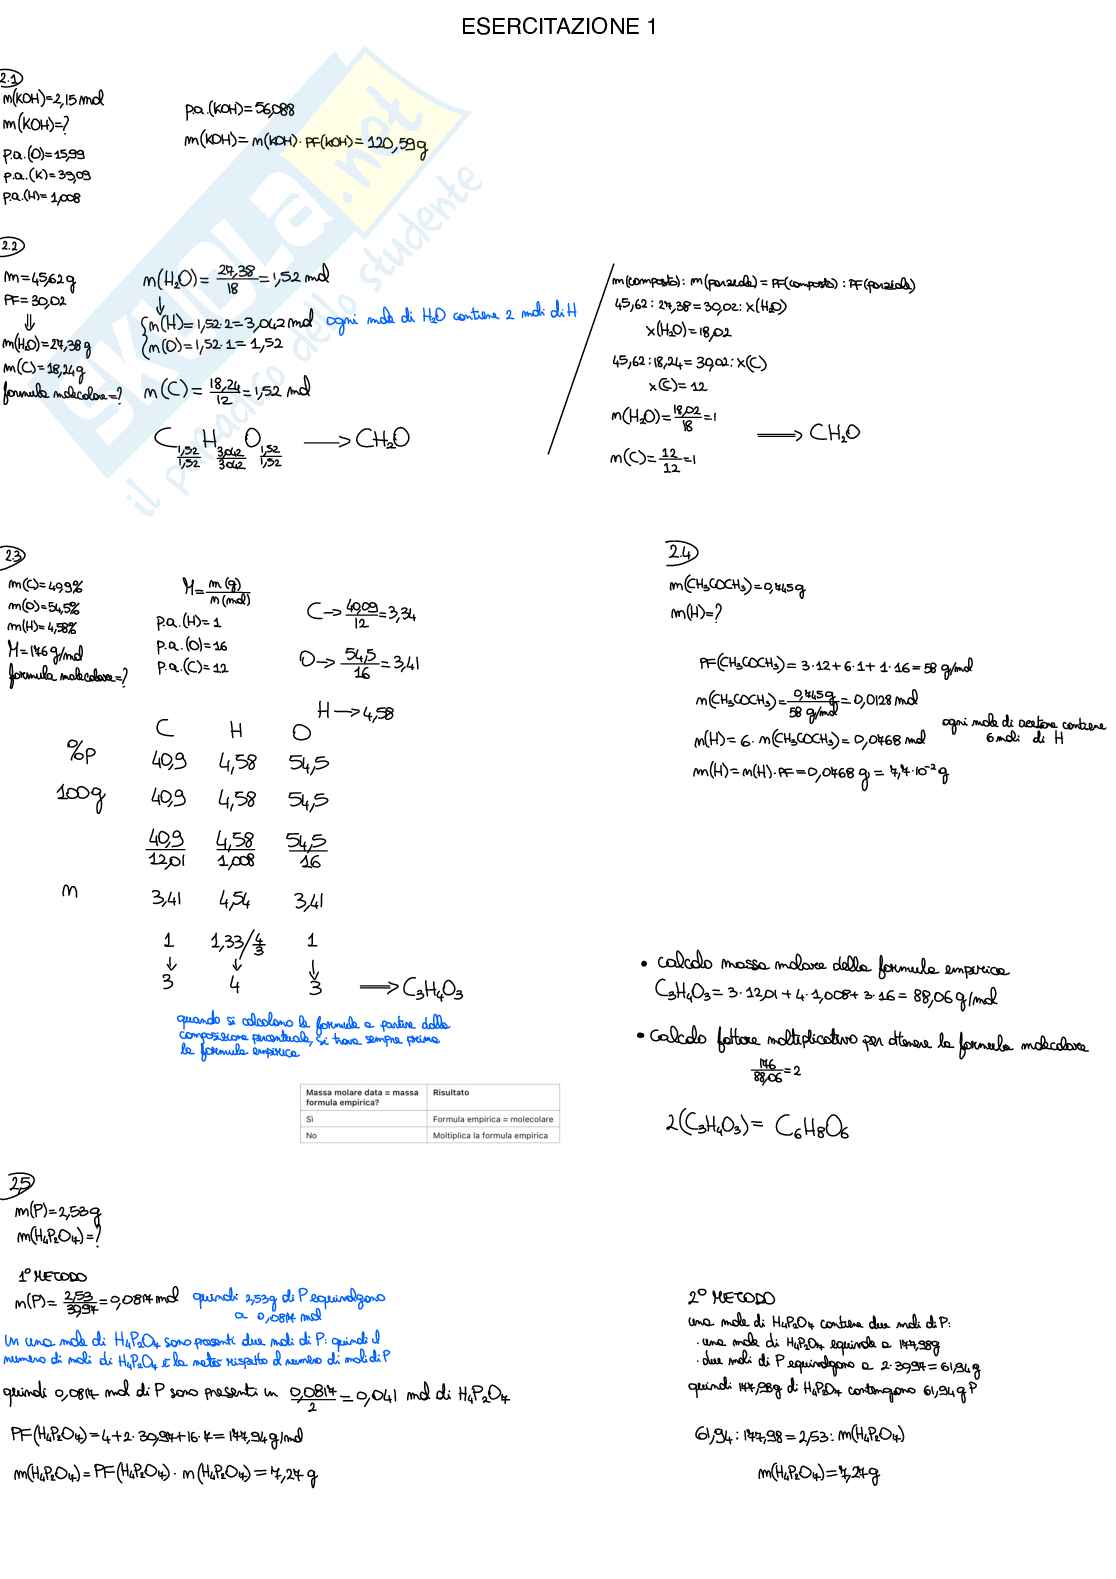 ESERCITAZIONE 1
2.1
n(KOH)=2,15 mol
m(KOH)=?
p.a.(O)=15,99
p.a.(K)=39,09
p.a.(H)=1,008
p.a.(KOH)=56,088
m(KOH)=n(KOH)·PF(KOH)=120,59g
2.2
m=45,62g
PF=30,02
⇓
m(H₂O)=27,38g
m(C)=18,24g
formula molecolare=?
n(H₂O)=27,38/18=1,52 mol
↓
{n(H)=1,52·2=3,042 mol ogni mole di H₂O contiene 2 moli di H
{n(O)=1,52·1=1,52
n(C)=18,24/12=1,52 mol
C 1,52/1,52 H 3,042/3,042 O 1,52/1,52 → CH₂O
m(composto): m(parziale)=PF(composto):PF(parziale)
45,62:27,38=30,02:x(H₂O)
x(H₂O)=18,02
45,62:18,24=30,02:x(C)
x(C)=12
n(H₂O)=18,02/18=1
⟹ CH₂O
n(C)=12/12=1
2.3
m(C)=40,9%
m(O)=54,5%
m(H)=4,58%
M=176 g/mol
formula molecolare=?
M=m(g)/n(mol)
p.a.(H)=1
p.a.(O)=16
p.a.(C)=12
C→40,09/12=3,34
O→54,5/16=3,41
H→4,58
C H O
%p 40,9 4,58 54,5
100g 40,9 4,58 54,5
40,9/12,01 4,58/1,008 54,5/16
n 3,41 4,54 3,41
1 1,33/4/3 1
↓ ↓ ↓
3 4 3 ⟹ C₃H₄O₃
quando si calcolano le formule a partire dalla
composizione percentuale, si trova sempre prima
la formula empirica
Massa molare data = massa formula empirica? Risultato
Sì Formula empirica = molecolare
No Moltiplica la formula empirica
• calcolo massa molare della formula empirica
C₃H₄O₃=3·12,01+4·1,008+3·16=88,06 g/mol
• calcolo fattore moltiplicativo per ottenere la formula molecolare
176/88,06=2
2(C₃H₄O₃)= C₆H₈O₆
2.4
m(CH₃COCH₃)=0,745g
m(H)=?
PF(CH₃COCH₃)=3·12+6·1+1·16=58 g/mol
n(CH₃COCH₃)=0,745g/58 g/mol=0,0128 mol
ogni mole di acetone contiene
6 moli di H
n(H)=6·n(CH₃COCH₃)=0,0768 mol
m(H)=n(H)·PF=0,0768 g=7,7·10⁻²g
2.5
m(P)=2,53g
m(H₄P₂O₇)=?
1° METODO
n(P)=2,53/30,97=0,0817 mol quindi 2,53g di P equivalgono
a 0,0817 mol
in una mole di H₄P₂O₇ sono presenti due moli di P: quindi il
numero di moli di H₄P₂O₇ è la metà rispetto il numero di moli di P
quindi 0,0817 mol di P sono presenti in 0,0817/2=0,041 mol di H₄P₂O₇
PF(H₄P₂O₇)=4+2·30,97+16·7=177,94 g/mol
m(H₄P₂O₇)=PF(H₄P₂O₇)·n(H₄P₂O₇)=7,27 g
2° METODO
una mole di H₄P₂O₇ contiene due moli di P:
· una mole di H₄P₂O₇ equivale a 177,98g
· due moli di P equivalgono a 2·30,97=61,94g
quindi 177,98g di H₄P₂O₇ contengono 61,94g P
61,94:177,98=2,53:m(H₄P₂O₇)
m(H₄P₂O₇)=7,27g
SKUOLA.net
il paradiso dello studente